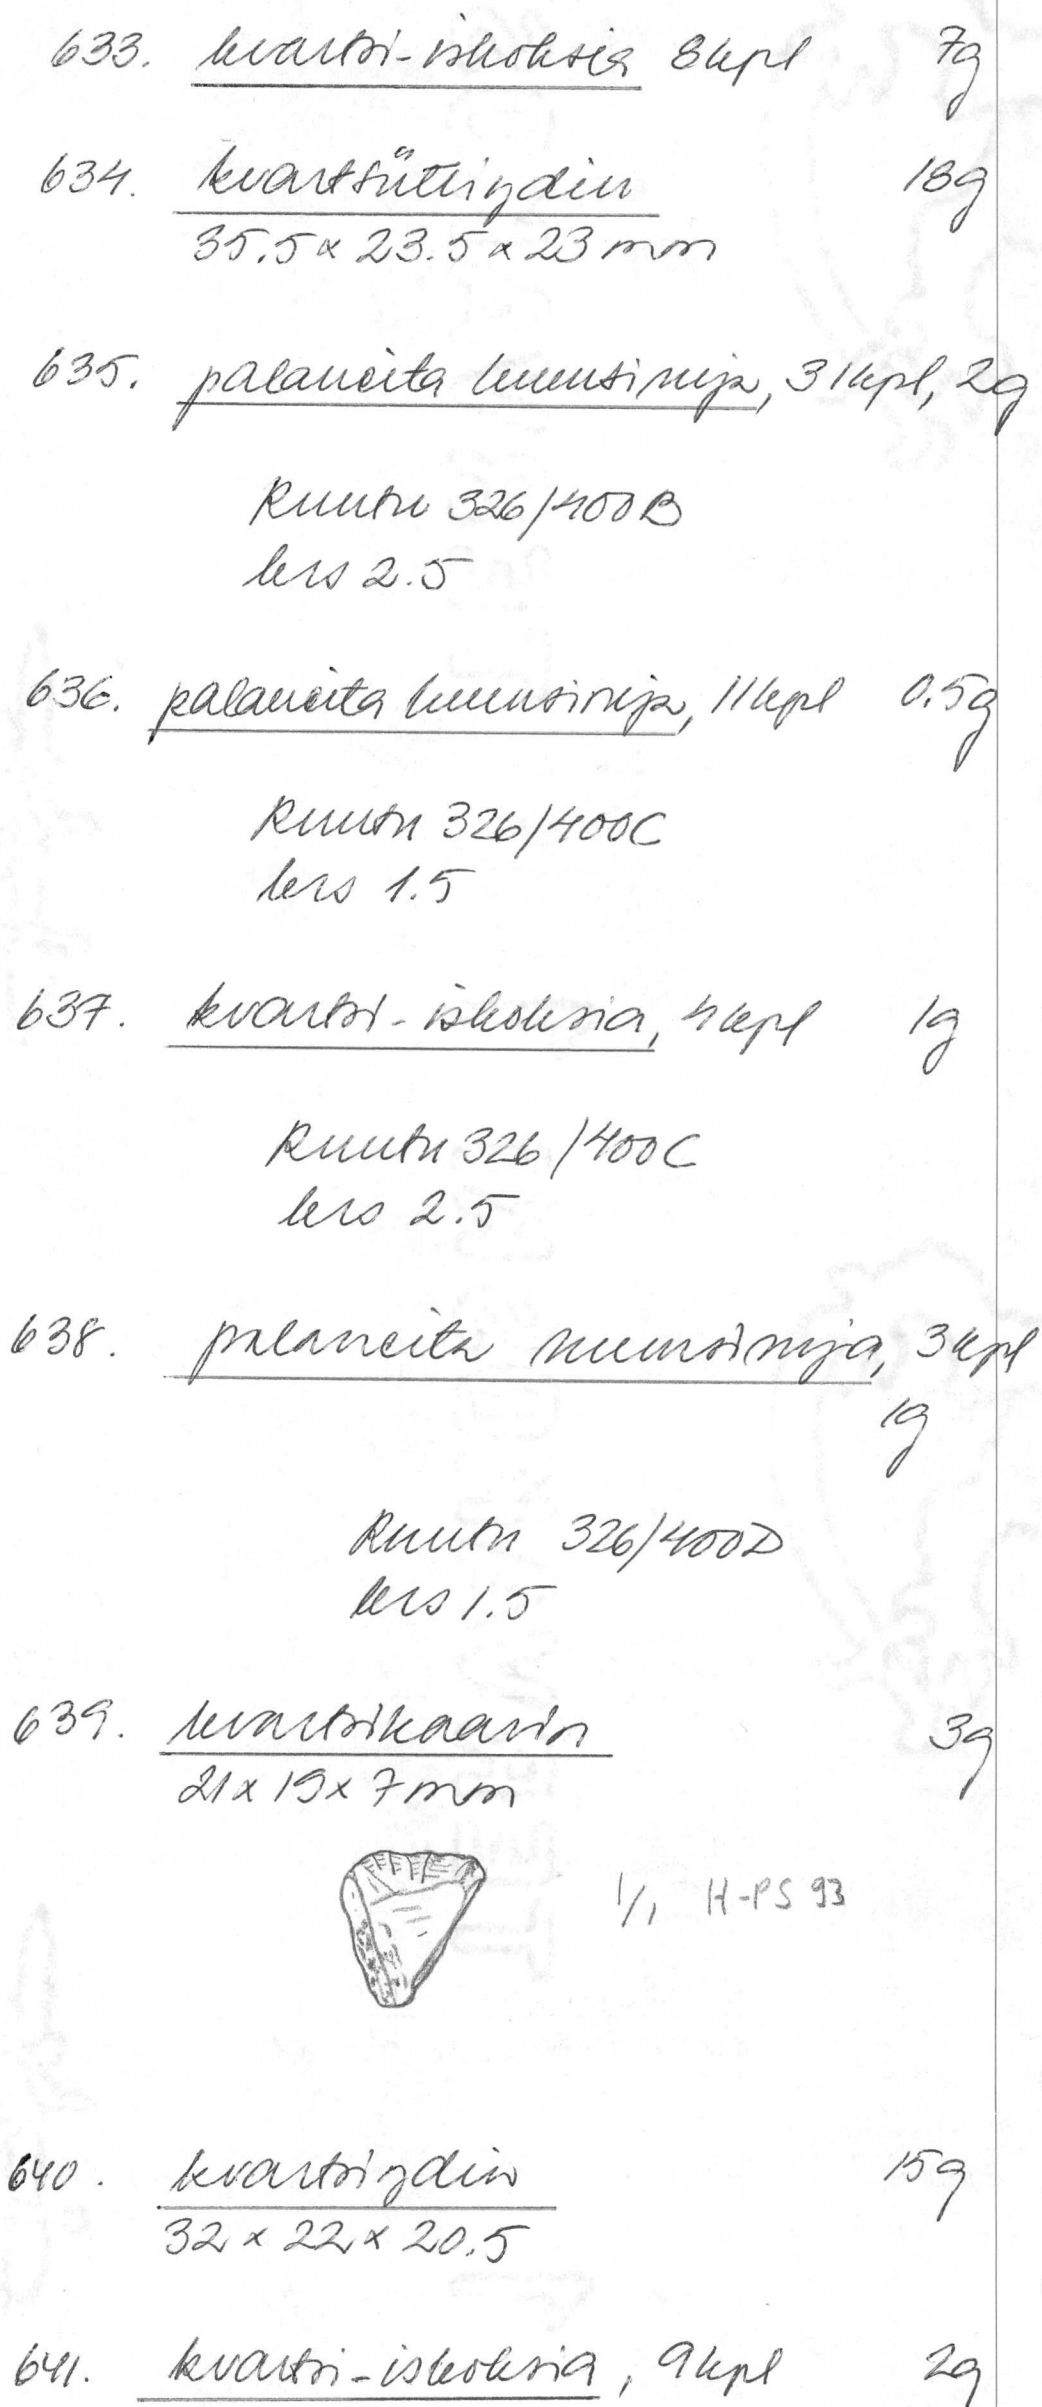 633. kvartsi-iskoksia 8kpl 7g
634. kvartsiittiydin 18g
35.5 x 23.5 x 23 mm
635. palaneita luunsiruja, 31kpl, 2g
Ruutu 326/400B
krs 2.5
636. palaneita luunsiruja, 11kpl 0.5g
Ruutu 326/400C
krs 1.5
637. kvartsi-iskoksia, 4kpl 1g
Ruutu 326/400C
krs 2.5
638. palaneita luunsiruja, 3kpl
1g
Ruutu 326/400D
krs 1.5
639. kvartsikaavin 3g
21 x 19 x 7 mm
1/1 H-PS 93
640. kvartsiydin 15g
32 x 22 x 20.5
641. kvartsi-iskoksia, 9kpl 2g